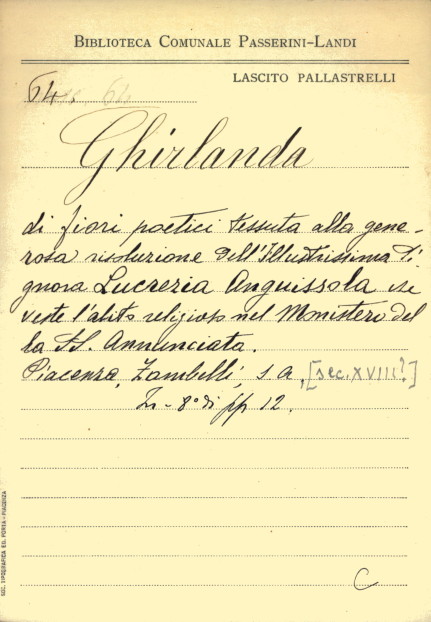 BIBLIOTECA COMUNALE PASSERINI-LANDI
LASCITO PALLASTRELLI
64.
Ghirlanda
di fiori poetici tessuta alla gene-
rosa risoluzione dell'Illustrissima Si
gnora Lucrezia Anguissola che
veste l'abito religioso nel Monistero del
la SS. Annunciata.
Piacenza, Zambelli, s a, [sec. XVIII?]
In-8° di pp 12.
C